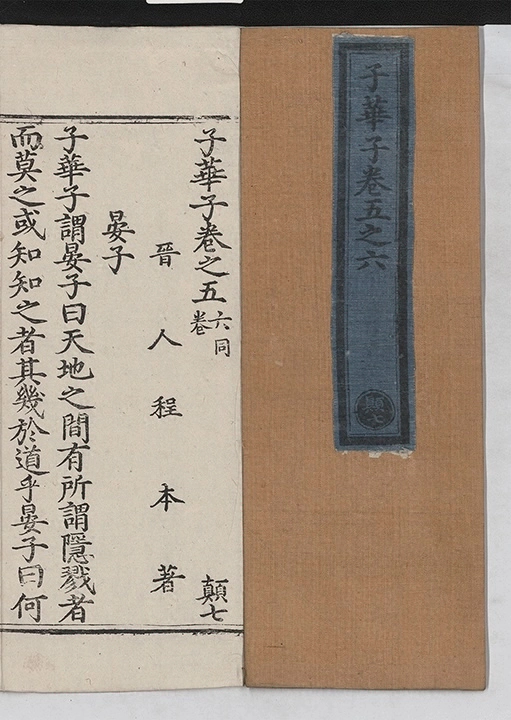 子華子卷五之六
顛七
子華子卷之五 六同卷 顛七
晉人程本著
晏子
子華子謂晏子曰天地之間有所謂隱戮者
而莫之或知知之者其幾於道乎晏子曰何